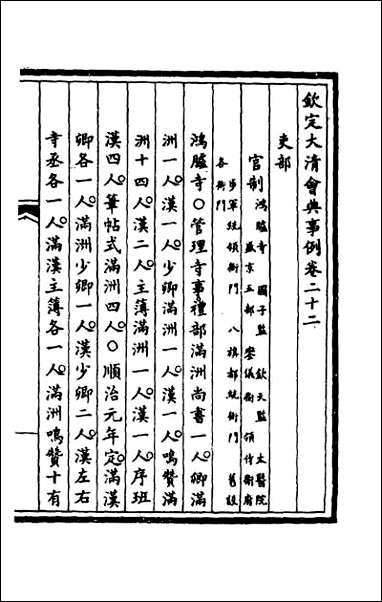 欽定大清會典事例卷二十二
吏部
官制 鴻臚寺 國子監 欽天監 太醫院
盛京五部 鑾儀衛 領侍衛府
步軍統領衙門 八旗都統衙門 舊設
各衙門
鴻臚寺○管理寺事禮部滿洲尚書一人卿滿
洲一人漢一人少卿滿洲一人漢一人鳴贊滿
洲十四人漢二人主簿滿洲一人漢一人序班
漢四人筆帖式滿洲四人○順治元年定滿漢
卿各一人滿洲少卿一人漢少卿二人漢左右
寺丞各一人滿漢主簿各一人滿洲鳴贊十有